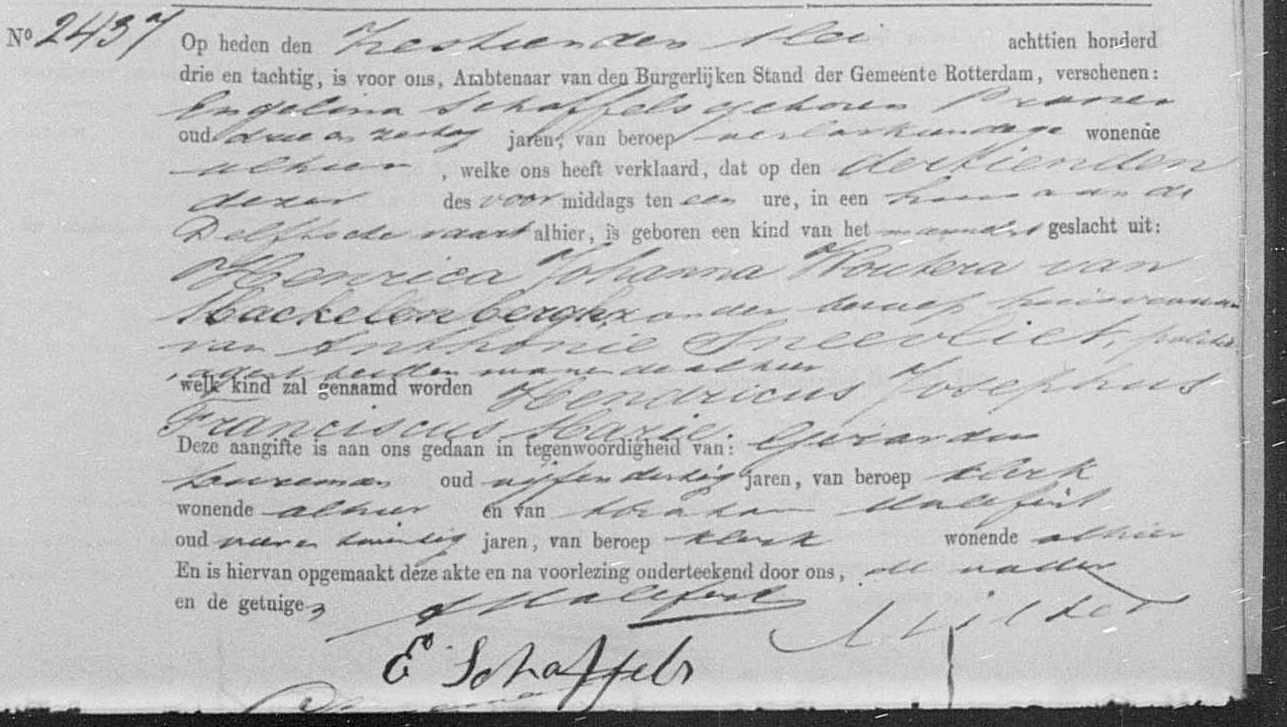 No 2437 Op heden den Zestienden Mei achttien honderd
drie en tachtig, is voor ons, Ambtenaar van den Burgerlijken Stand der Gemeente Rotterdam, verschenen:
Engelina Schaffels geboren
oud drie en zestig jaren, van beroep verloskundige wonende
alhier, welke ons heeft verklaard, dat op den dertienden
dezer des voormiddags ten een ure, in een huis aan de
Delftsche vaart alhier, is geboren een kind van het mannelijk geslacht uit:
Henrica Johanna Woutera van
Mackelenbergh, zonder beroep huisvrouw
van Anthonie Sneevliet, politie
agent, beiden wonende alhier
welk kind zal genaamd worden Hendricus Josephus
Franciscus Marie.
Deze aangifte is aan ons gedaan in tegenwoordigheid van: Gerardus
oud vijf en dertig jaren, van beroep klerk
wonende alhier en van Abraham Malefijt
oud vier en twintig jaren, van beroep klerk wonende alhier
En is hiervan opgemaakt deze akte en na voorlezing onderteekend door ons, de
en de getuigen
A Malefijt
E Schaffels